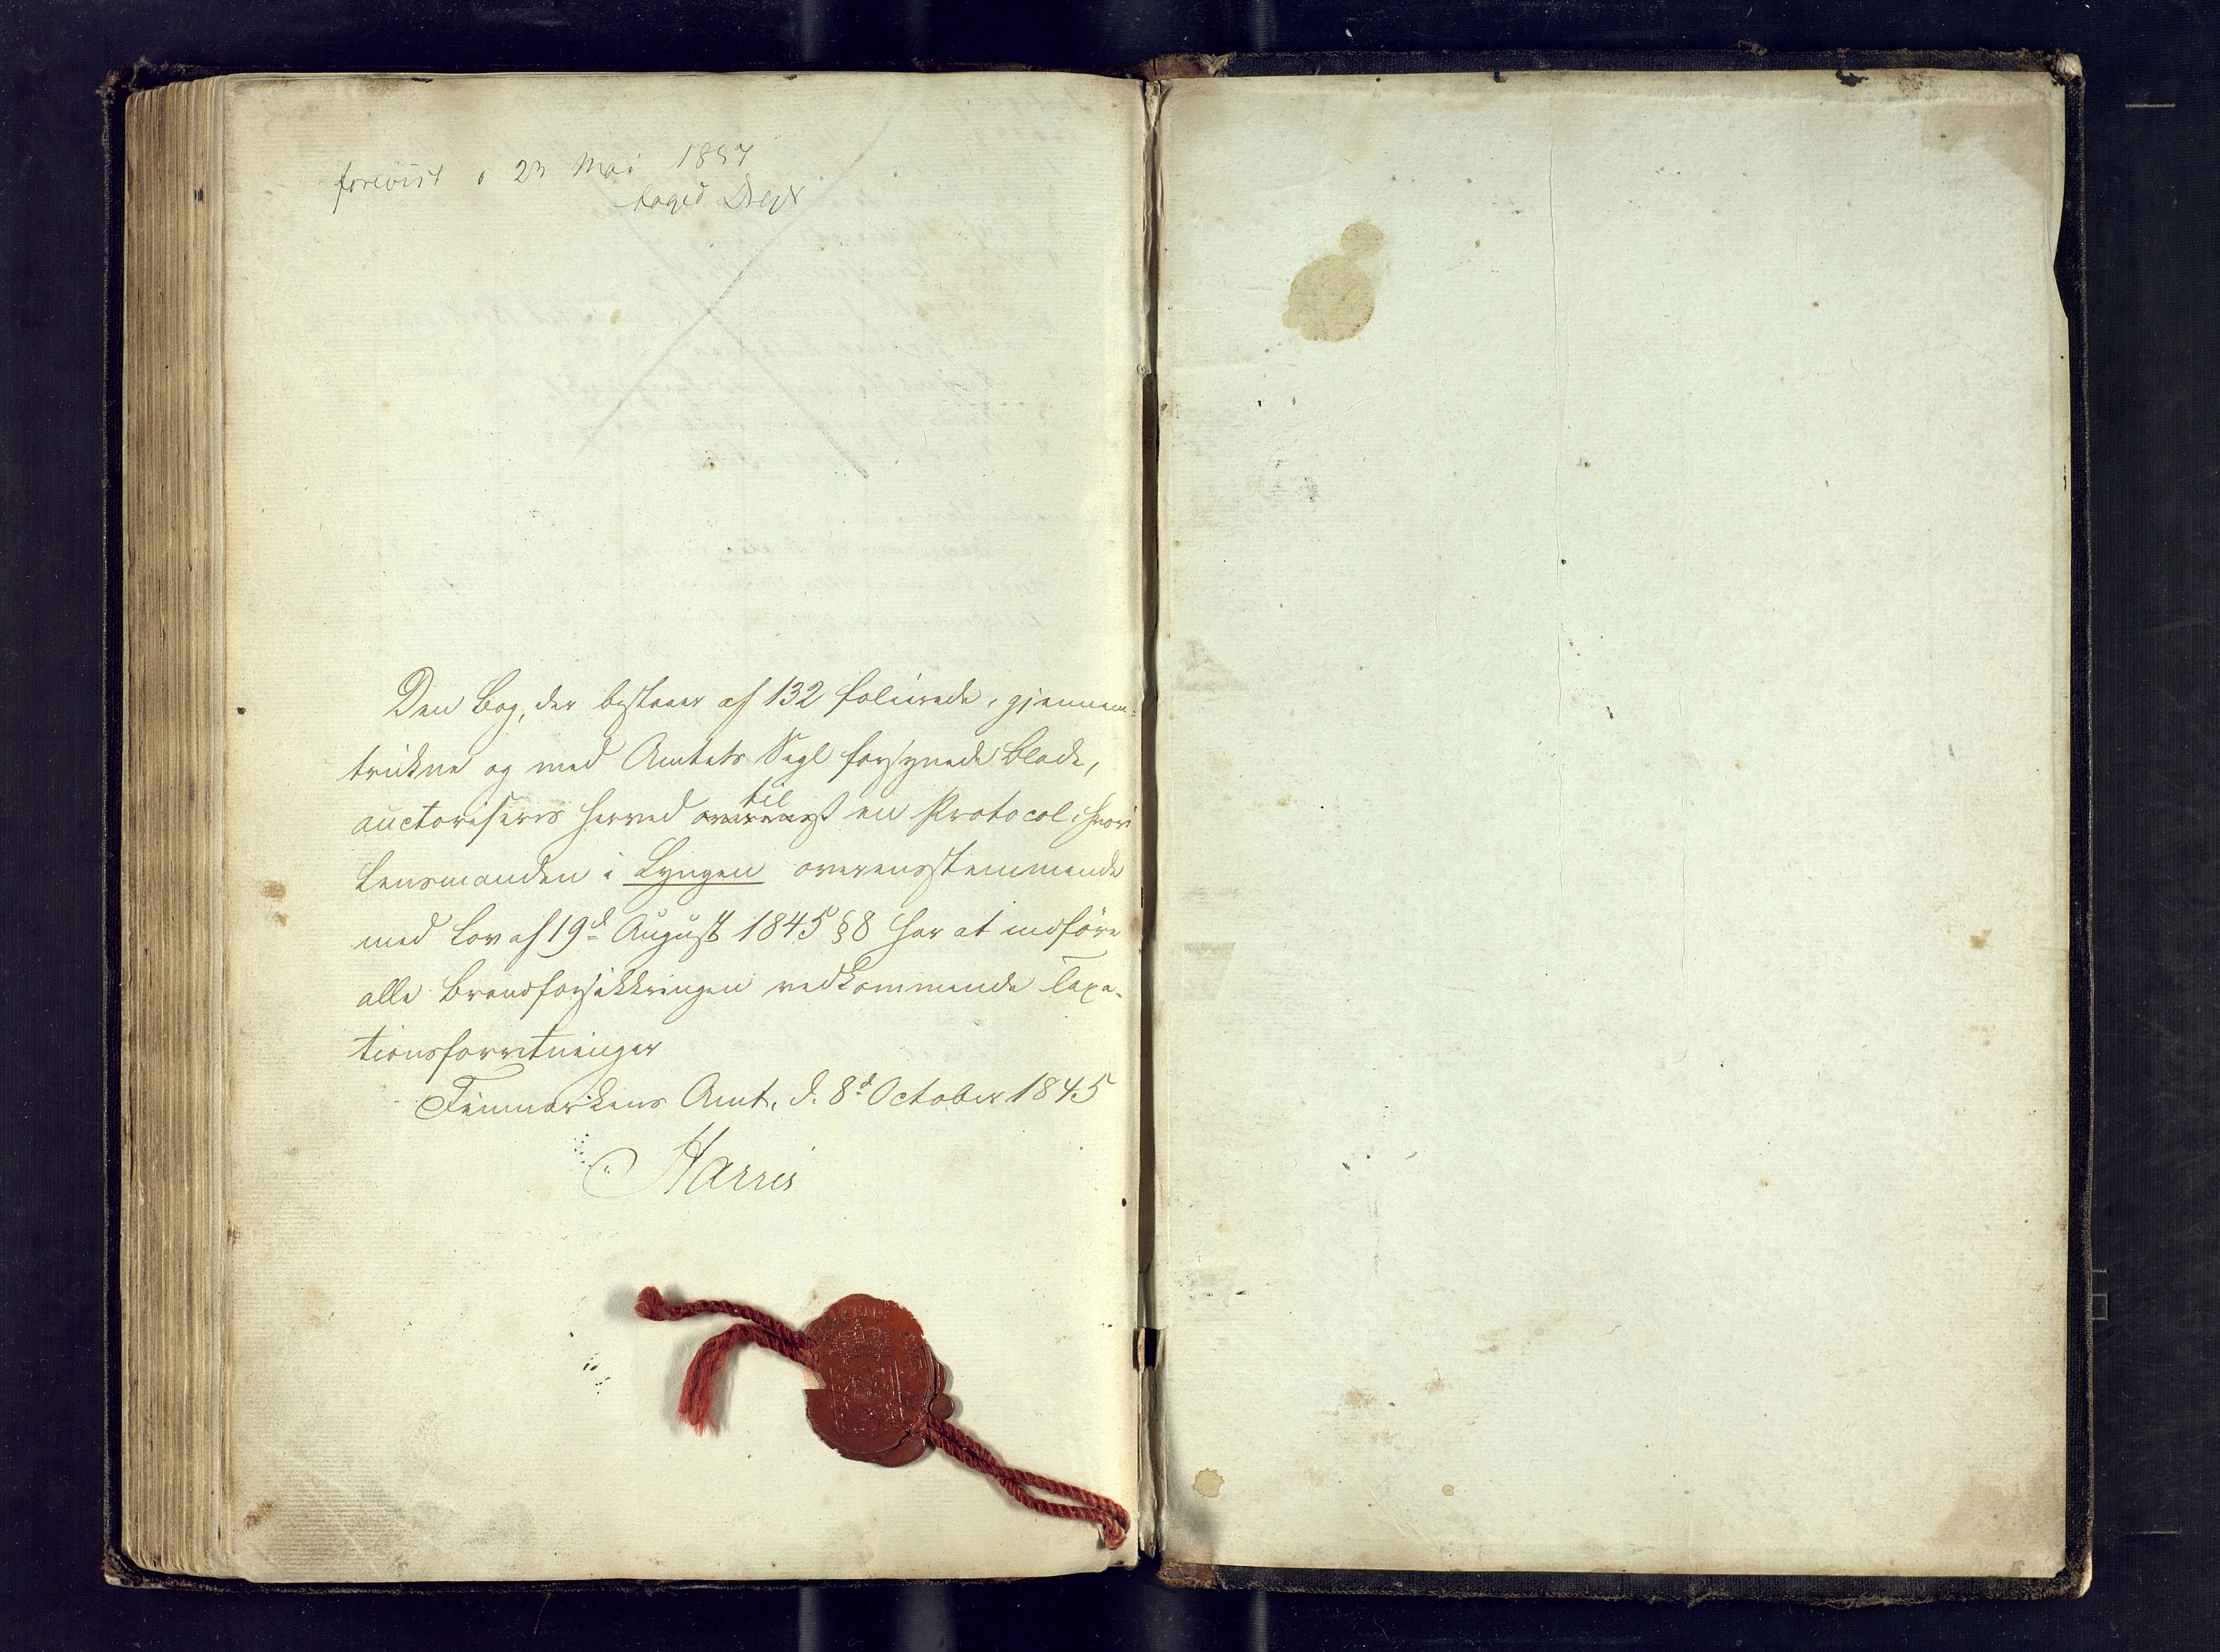 forevist d 23 Mai 1857
Den Bog, der bestaaer af 132 foliirede, gjennem-
trukne og med Amtets Segl forsynede Blade,
auctoriseres herved til en Protocol, hvori
Lensmanden i Lyngen overensstemmende
med Lov af 19d August 1845 § 8 har at indföre
alle Brandforsikkringen vedkommende Taxa-
tionsforretninger
Finmarkens Amt, d. 8d October 1845
Harris